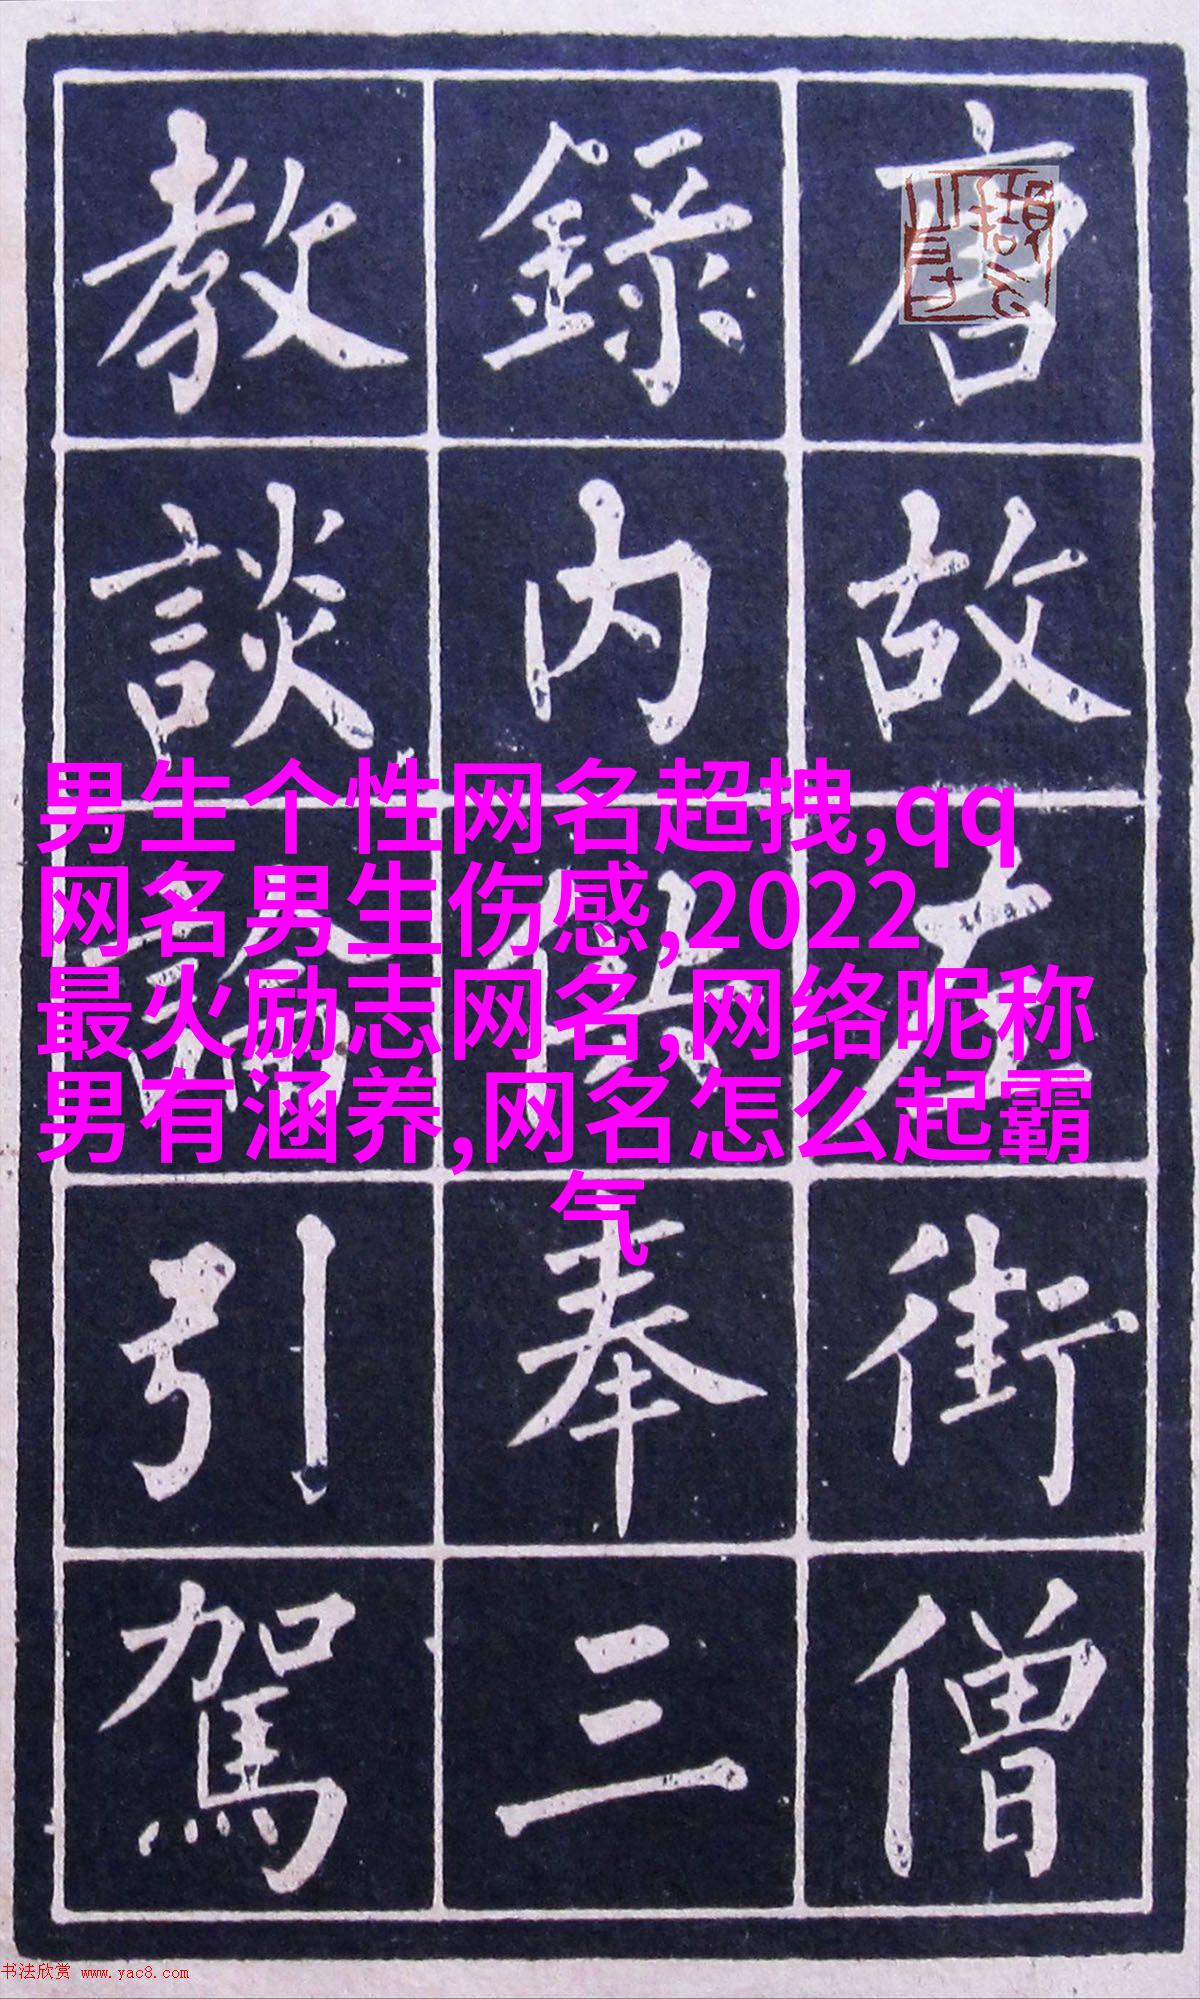 唐故左街僧
録内供奉三
教談論引駕
男生个性网名超拽,qq
网名男生伤感,2022
最火励志网名,网络昵称
男有涵养,网名怎么起霸
气
书法欣赏 www.yac8.com